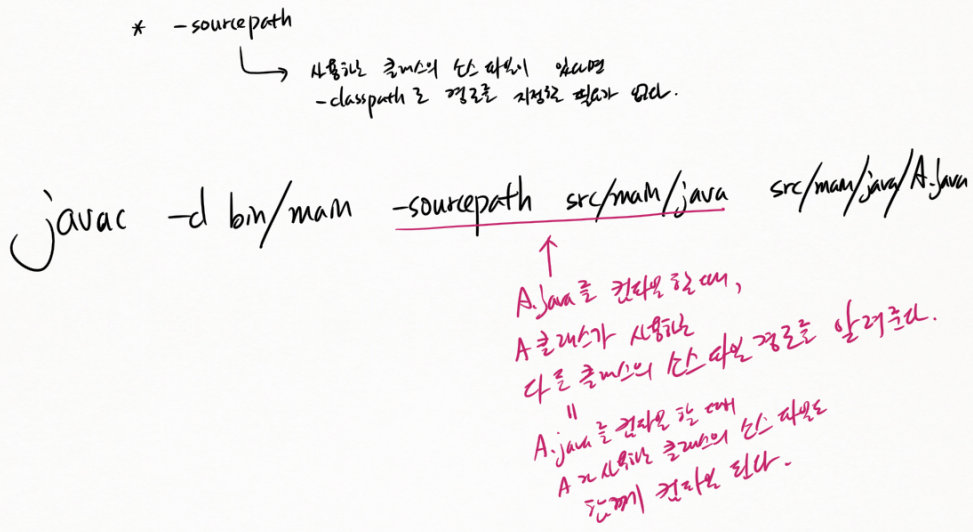 * -sourcepath
사용하는 클래스의 소스 파일이 있다면
-classpath로 경로를 지정할 필요가 없다.
javac -d bin/main -sourcepath src/main/java src/main/java/A.java
A.java를 컴파일 할 때,
A 클래스가 사용하는
다른 클래스의 소스 파일 경로를 알려준다.
=
A.java를 컴파일 할 때
A가 사용하는 클래스의 소스 파일도
함께 컴파일 된다.